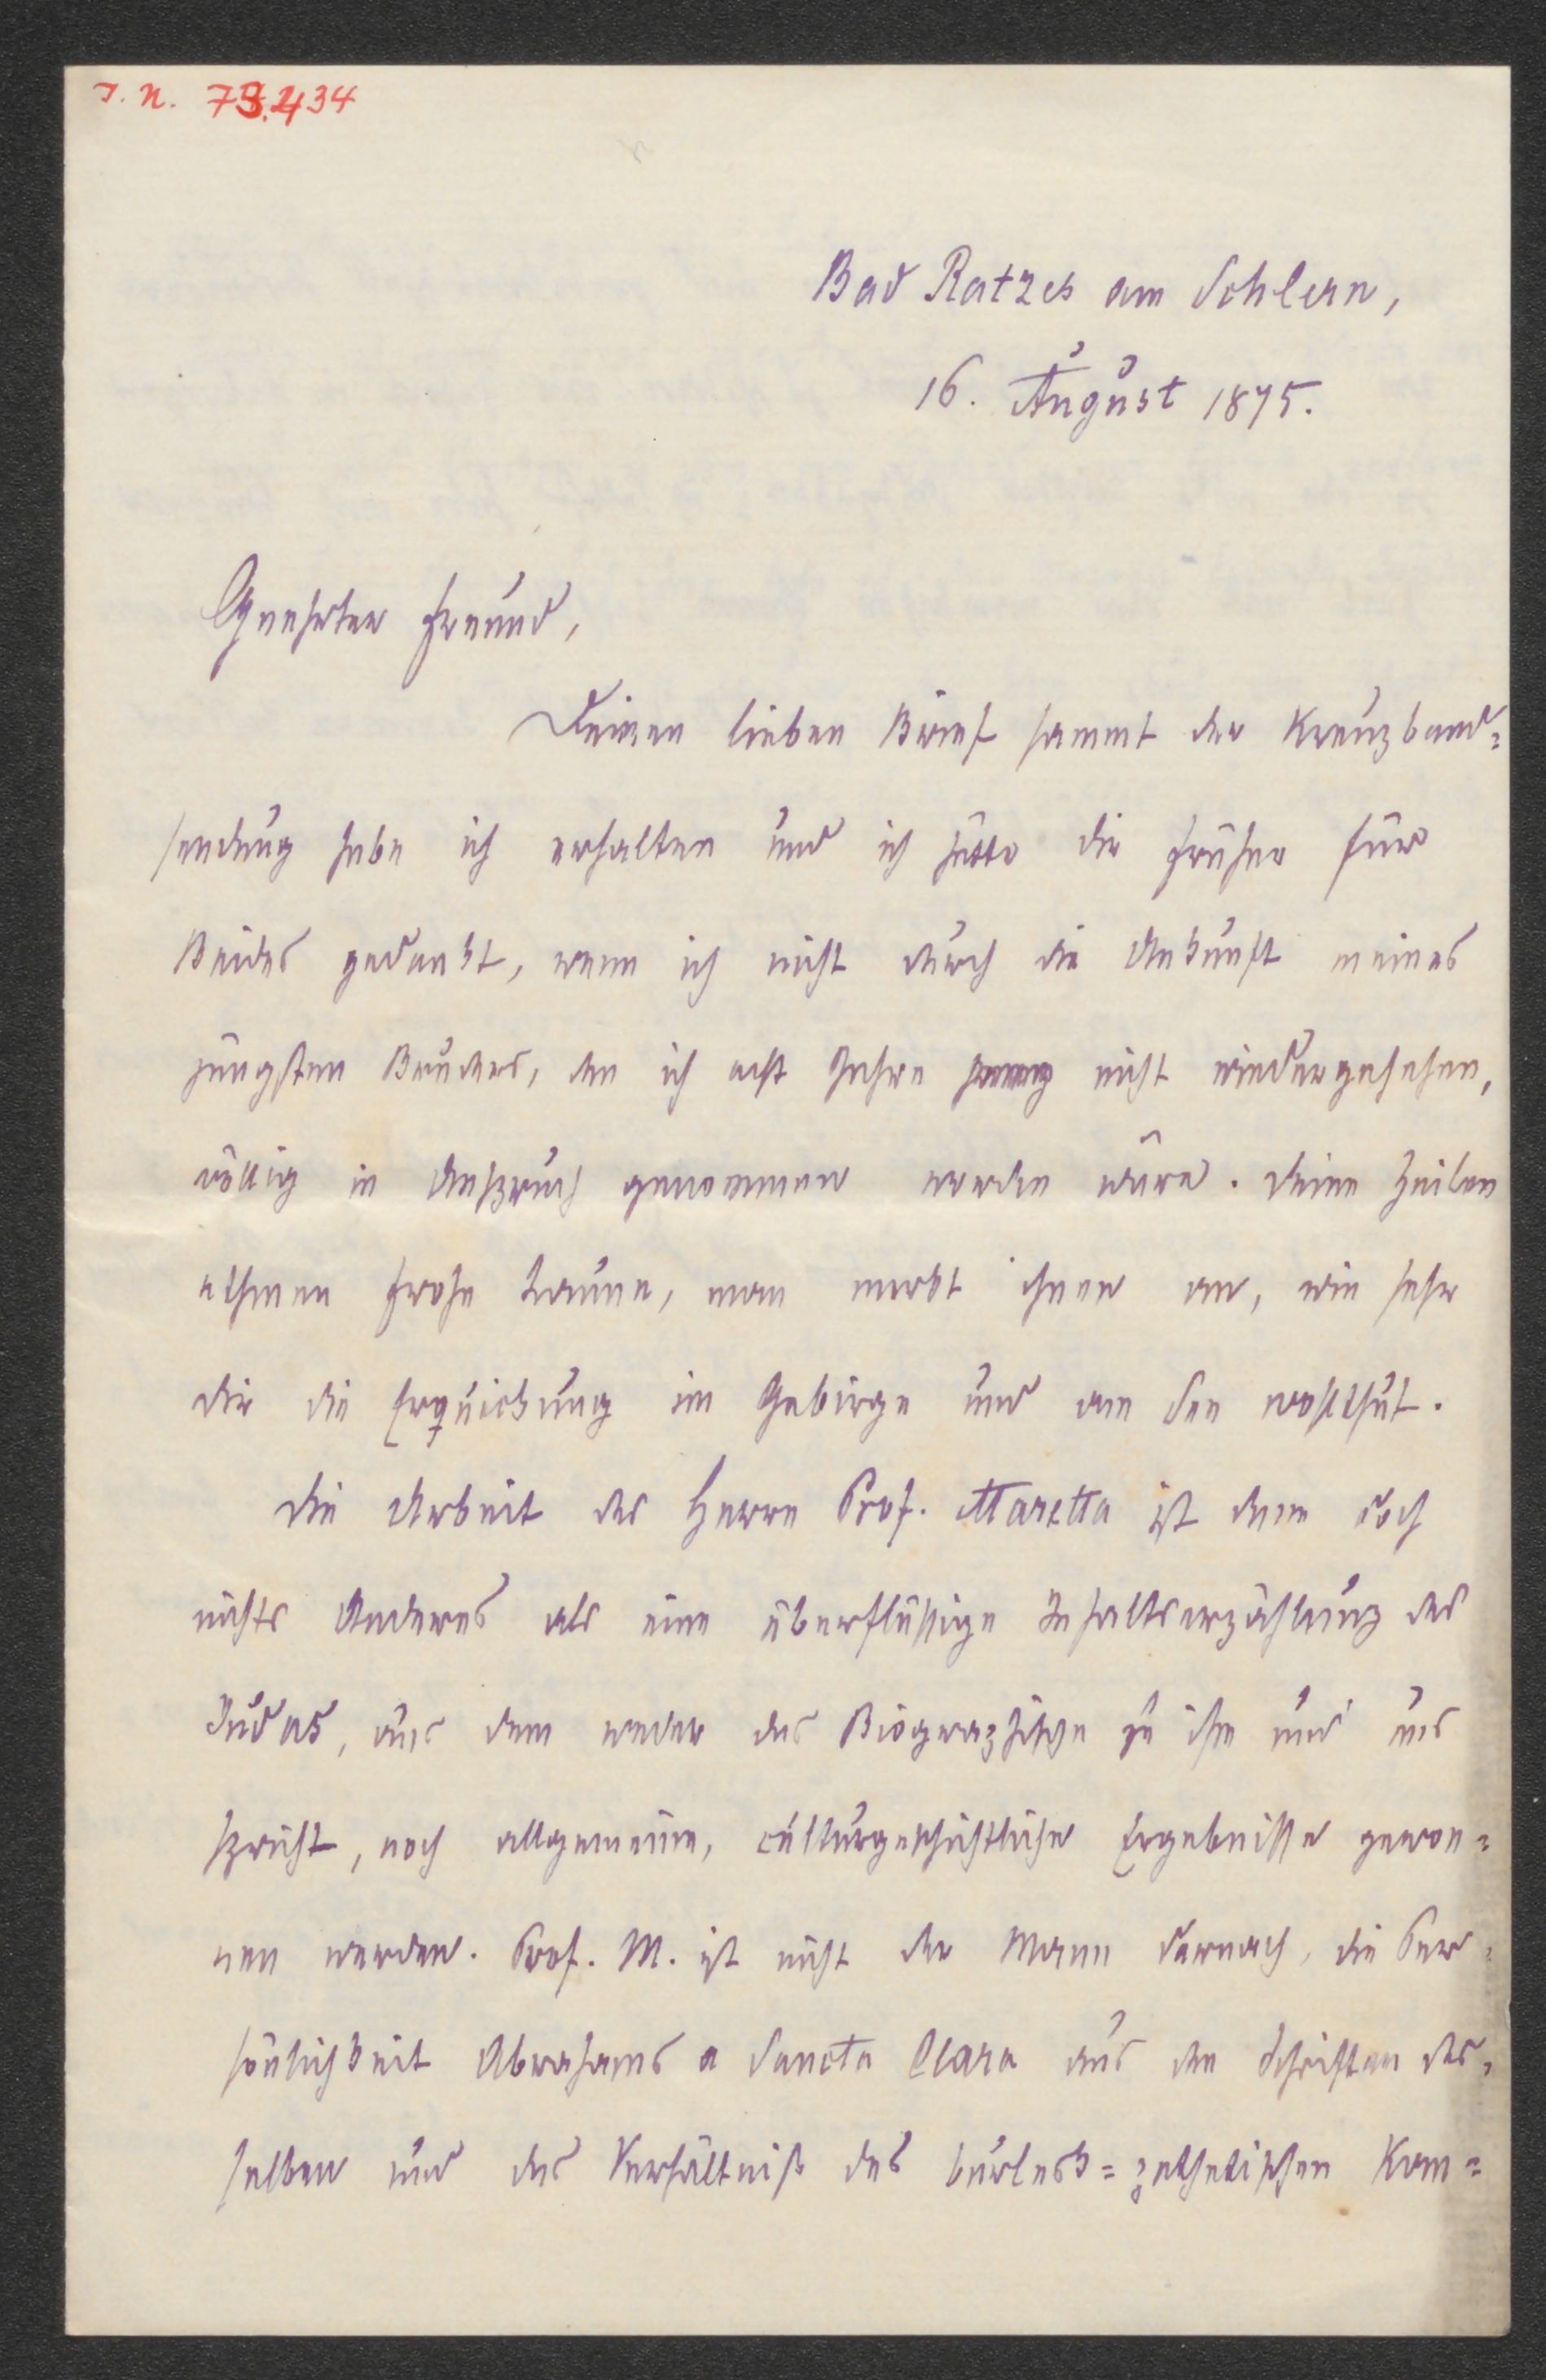 I. N. 73.434
Bad Ratzes am Schlern,
16. August 1875.
Geehrter Freund,
Deinen lieben Brief sammt der Kreuzband=
sendung habe ich erhalten und ich hätte dir früher für
Beides gedankt, wenn ich nicht durch die Ankunft meines
jüngsten Bruders, den ich acht Jahre nicht wiedergesehen,
völlig in Anspruch genommen worden wäre. Deine Zeilen
athmen frohe Laune, man merkt ihnen an, wie sehr
dir die Erquickung im Gebirge und am See wohlthut.
Die Arbeit des Herrn Prof. Maretta ist denn doch
nichts Anderes als eine überflüssige Inhaltserzählung des
Judas, aus dem weder das Biographische zu ihm und uns
spricht, noch allgemeine, culturgeschichtliche Ergebnisse gewon=
nen werden. Prof. M. ist nicht der Mann darnach, die Per=
sönlichkeit Abrahams a Sancta Clara aus den Schriften des=
selben und das Verhältniß des burlesk=pathetischen Kam=